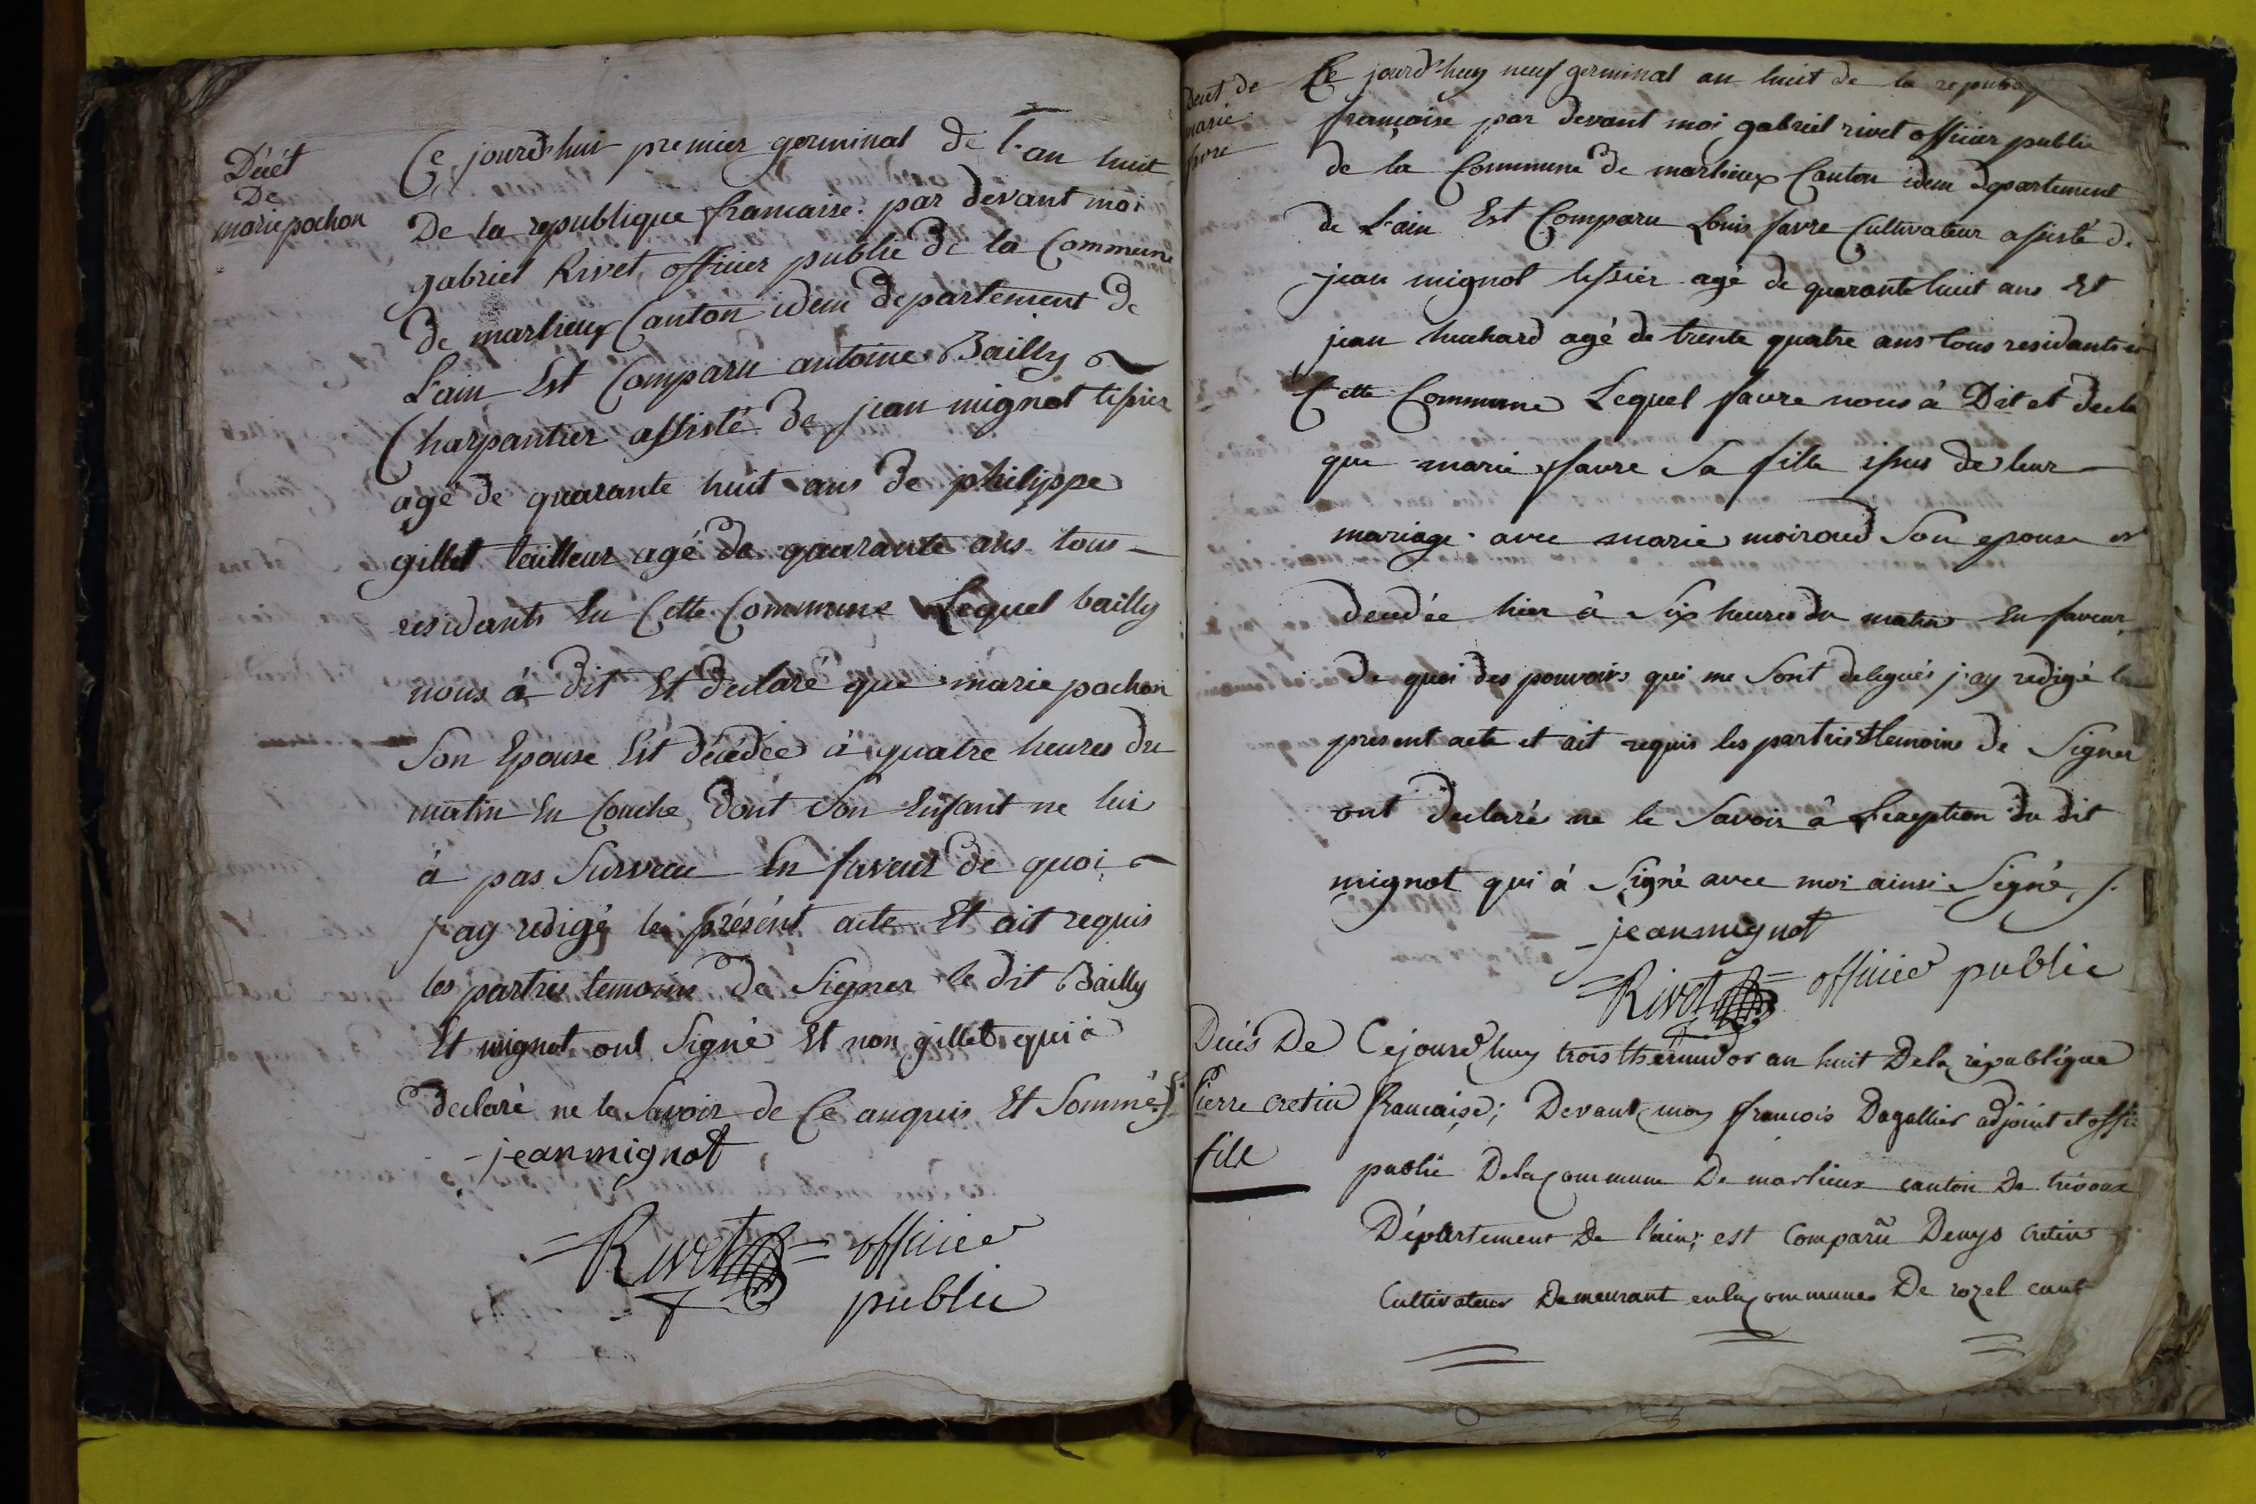 Décét
De
marie pochon
Ce jourd'hui premier germinal de L'an huit
De la republique francaise par devant moi
gabriel Rivet officier public de la Commune
de marlieux Canton idem departement de
L'ain Est Comparu antoine Bailly
Charpantier assisté de jean mignot tissier
agé de quarante huit ans de philippe
gillet tailleur agé de quarante ans tous
residants En Cette Commune Lequel bailly
nous à dit Et declaré que marie pochon
Son Epouse Est décédée à quatre heures du
matin En Couche dont Son Enfant ne lui
à pas Survecu En faveur de quoi
j'ay redigé le présent acte Et ait requis
les parties temoins de Signer le dit Bailly
Et mignot ont Signé Et non gillet qui à
declaré ne le Savoir de Ce anquis Et Sommé
jean mignot
Rivet officier
public
decet de
marie
favre
Ce jourd'huy neuf germinal an huit de la repub
francaise par devant moi gabriel rivet officier public
de la Commune de marlieux Canton idem departement
de L'ain Est Comparu Louis favre Cultivateur assisté de
jean mignot tissier agé de quarante huit ans Et
jean huchard agé de trente quatre ans tous residants en
Cette Commune Lequel favre nous à Dit et decla
que marie favre Sa fille issus de leur
mariage avec marie moiroud Son epouse est
decedée hier à Six heures du matin En faveur
de quoi des pouvoirs qui me Sont delegués j'ay redigé le
present acte et ait requis les parties temoins de Signer
ont declaré ne le Savoir à L'exeption du dit
mignot qui à Signé avec moi ainsi Signé
jean mignot
Rivet officier public
Décés De
Pierre cretin
fils
Ce jourd'huy trois thermidor an huit De la république
francaise; Devant moy françois Dagallier adjoint et offi
public De la commune De marlieux canton De trévoux
Département De l'ain; est Comparû Denys cretin
Cultivateur Demeurant en la commune De rozel cant